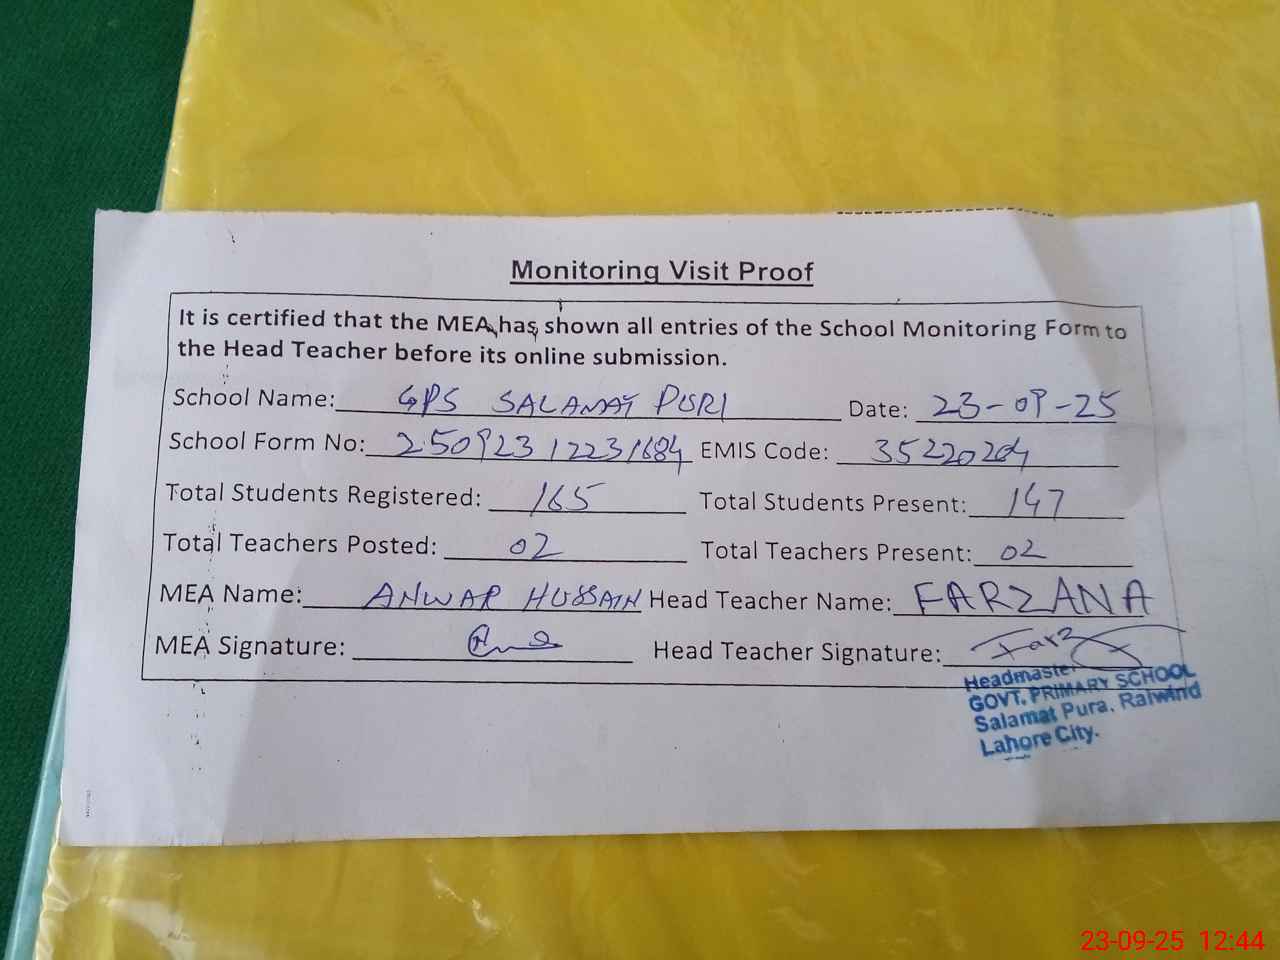 Monitoring Visit Proof
It is certified that the MEA has shown all entries of the School Monitoring Form to
the Head Teacher before its online submission.
School Name: GPS SALAMAT PURI Date: 23-09-25
School Form No: 25092312231684 EMIS Code: 35220204
Total Students Registered: 165 Total Students Present: 147
Total Teachers Posted: 02 Total Teachers Present: 02
MEA Name: ANWAR HUSSAIN Head Teacher Name: FARZANA
MEA Signature: Head Teacher Signature: Farz
Headmaster
GOVT. PRIMARY SCHOOL
Salamat Pura, Raiwind
Lahore City.
23-09-25 12:44